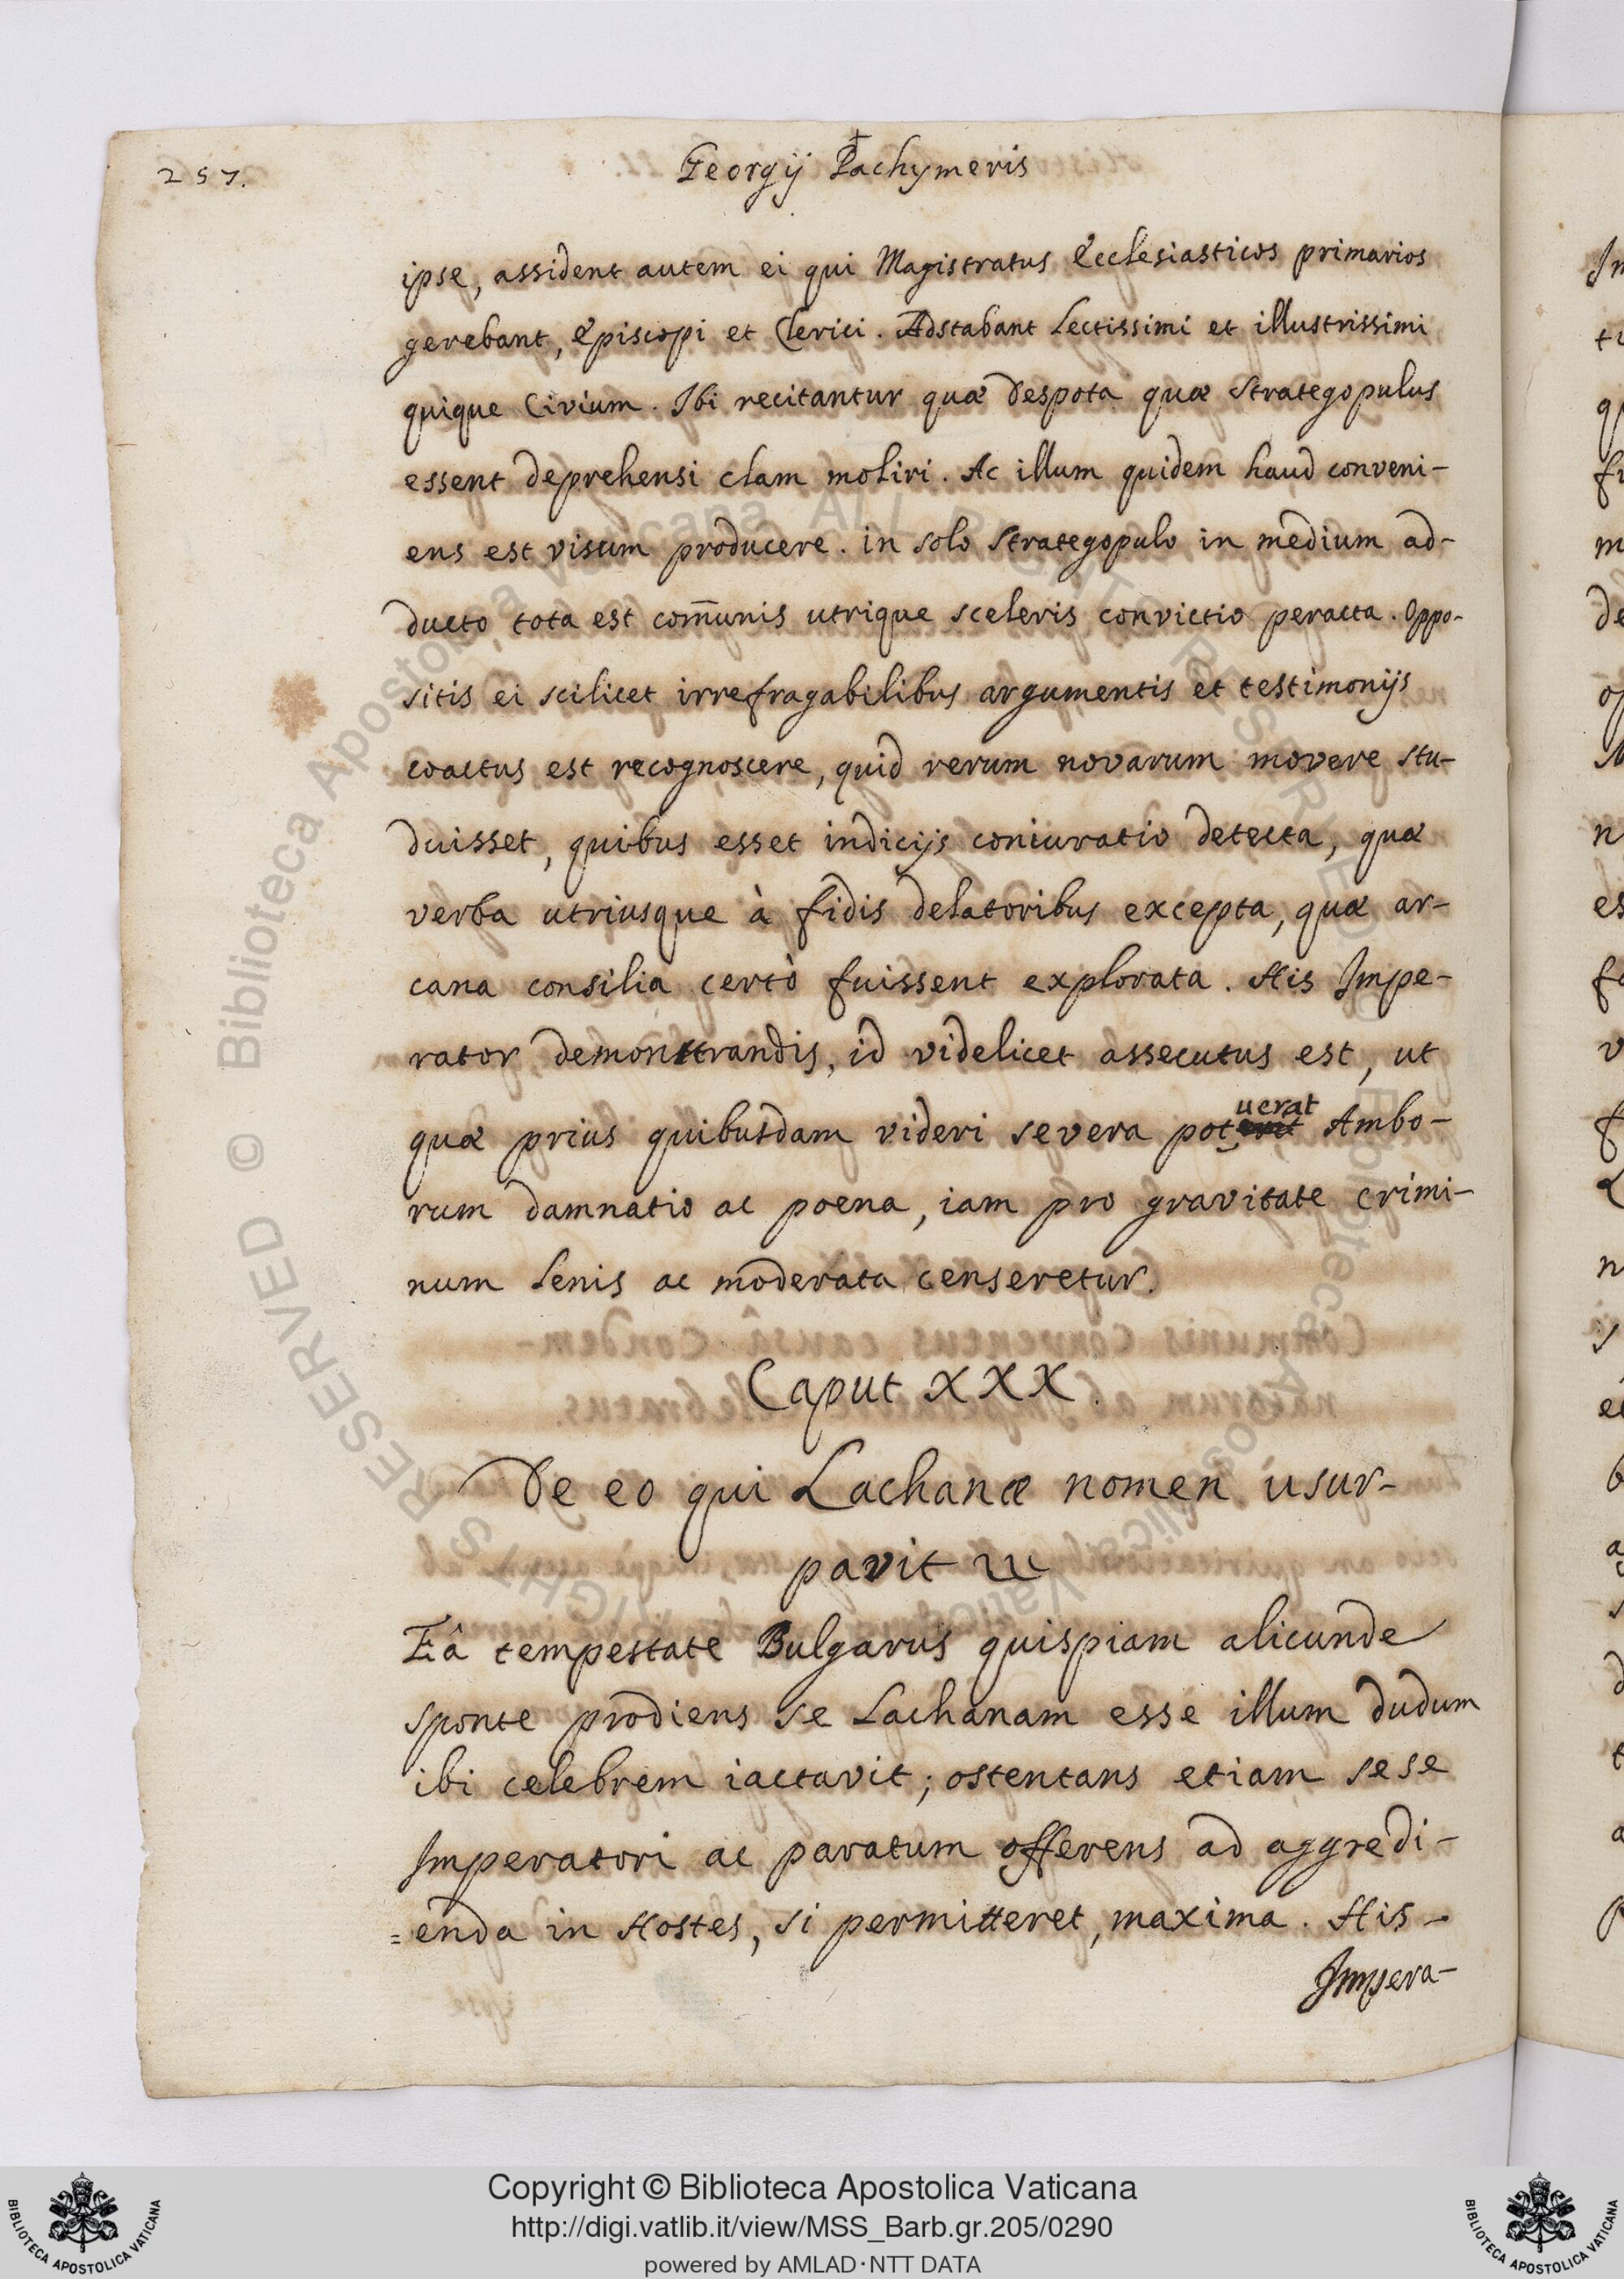 257.
Georgij Pachymeris
ipse, assident autem ei qui Magistratus Ecclesiasticos primarios
gerebant, Episcopi et Clerici. Adstabant lectissimi et illustrissimi
quique Civium. Ibi recitantur quæ Despota quæ Strategopulus
essent deprehensi clam moliri. Ac illum quidem haud conveni-
ens est visum producere. in solo Strategopulo in medium ad-
ducto tota est com̄unis utrique sceleris convictio peracta. Oppo-
sitis ei scilicet irrefragabilibus argumentis et testimonijs
coactus est recognoscere, quid rerum novarum movere stu-
duisset, quibus esset indicijs coniuratio detecta, quæ
verba utriusque à fidis delatoribus excepta, quæ ar-
cana consilia certò fuissent explorata. His Impe-
rator demonstrandis, id videlicet assecutus est, ut
quæ prius quibusdam videri severa potuerat Ambo-
rum damnatio ac poena, iam pro gravitate crimi-
num lenis ac moderata censeretur.
Caput XXX.
De eo qui Lachanæ nomen usur-
pavit
Eâ tempestate Bulgarus quispiam alicunde
sponte prodiens se Lachanam esse illum dudum
ibi celebrem iactavit; ostentans etiam sese
Imperatori ac paratum offerens ad aggredi-
=enda in Hostes, si permitteret, maxima. His
Impera-
Copyright © Biblioteca Apostolica Vaticana
http://digi.vatlib.it/view/MSS_Barb.gr.205/0290
powered by AMLAD·NTT DATA